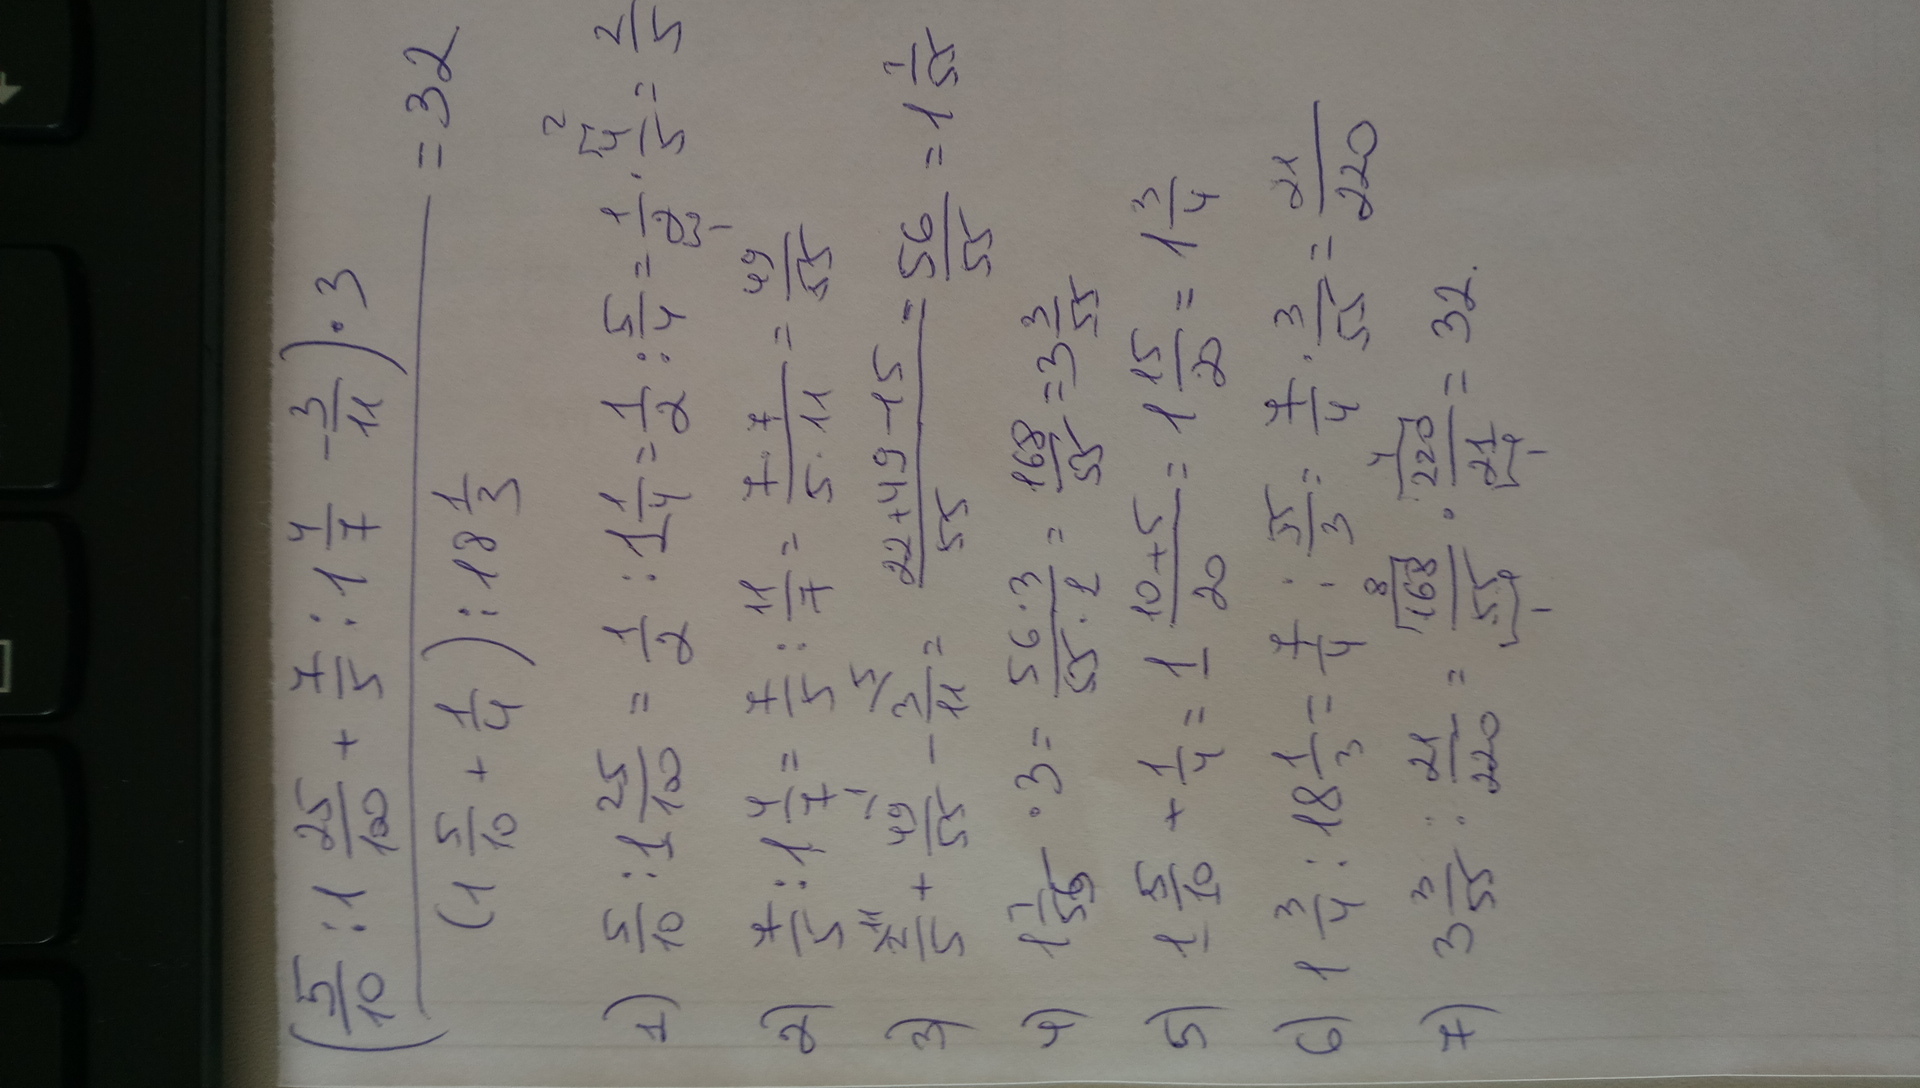 (5/10 : 1 25/100 + 7/5 : 1 4/7 - 3/11) · 3
= 32
(1 5/10 + 1/4) : 18 1/3
1) 5/10 : 1 25/100 = 1/2 : 1 1/4 = 1/2 : 5/4 = 1/2 · 4/5 = 2/5
2) 7/5 : 1 4/7 = 7/5 : 11/7 = 7·7/5·11 = 49/55
3) 2/5 + 49/55 - 3/11 = 22+49-15/55 = 56/55 = 1 1/55
4) 1 1/55 · 3 = 56·3/55·1 = 168/55 = 3 3/55
5) 1 5/10 + 1/4 = 1 10+5/20 = 1 15/20 = 1 3/4
6) 1 3/4 : 18 1/3 = 7/4 : 55/3 = 7/4 · 3/55 = 21/220
7) 3 3/55 : 21/220 = 168/55 · 220/21 = 32.